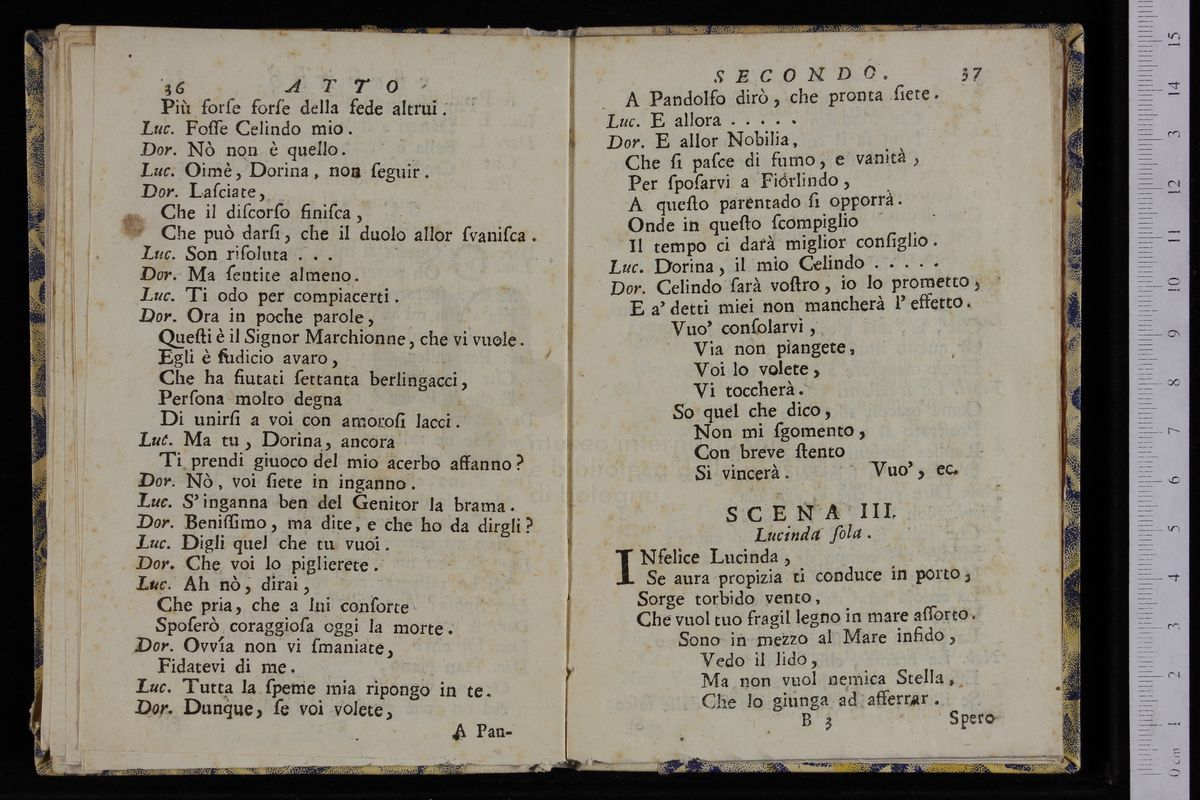 36 ATTO
Più forſe forſe della fede altrui.
Luc. Foſſe Celindo mio.
Dor. Nò non è quello.
Luc. Oimè, Dorina, non ſeguir.
Dor. Laſciate,
Che il diſcorſo finiſca,
Che può darſi, che il duolo allor ſvaniſca.
Luc. Son riſoluta . . .
Dor. Ma ſentite almeno.
Luc. Ti odo per compiacerti.
Dor. Ora in poche parole,
Queſti è il Signor Marchionne, che vi vuole.
Egli è ſudicio avaro,
Che ha fiutati ſettanta berlingacci,
Perſona molto degna
Di unirſi a voi con amoroſi lacci.
Luc. Ma tu, Dorina, ancora
Ti prendi giuoco del mio acerbo affanno?
Dor. Nò, voi ſiete in inganno.
Luc. S'inganna ben del Genitor la brama.
Dor. Beniſſimo, ma dite, e che ho da dirgli?
Luc. Digli quel che tu vuoi.
Dor. Che voi lo piglierete.
Luc. Ah nò, dirai,
Che pria, che a lui conſorte
Spoſerò coraggioſa oggi la morte.
Dor. Ovvía non vi ſmaniate,
Fidatevi di me.
Luc. Tutta la ſpeme mia ripongo in te.
Dor. Dunque, ſe voi volete,
A Pan-
SECONDO. 37
A Pandolfo dirò, che pronta ſiete.
Luc. E allora . . . . .
Dor. E allor Nobilia,
Che ſi paſce di fumo, e vanità,
Per ſpoſarvi a Fiorlindo,
A queſto parentado ſi opporrà.
Onde in queſto ſcompiglio
Il tempo ci darà miglior conſiglio.
Luc. Dorina, il mio Celindo . . . . .
Dor. Celindo ſarà voſtro, io lo prometto,
E a' detti miei non mancherà l'effetto.
Vuo' conſolarvi,
Via non piangete,
Voi lo volete,
Vi toccherà.
So quel che dico,
Non mi ſgomento,
Con breve ſtento
Si vincerà. Vuo', ec.
SCENA III.
Lucinda ſola.
INfelice Lucinda,
Se aura propizia ti conduce in porto,
Sorge torbido vento,
Che vuol tuo fragil legno in mare aſſorto.
Sono in mezzo al Mare infido,
Vedo il lido,
Ma non vuol nemica Stella,
Che lo giunga ad afferrar.
B 3 Spero
museo inter
e biblioteca
di bologna
0 cm 1 2 3 4 5 6 7 8 9 10 11 12 13 14 15